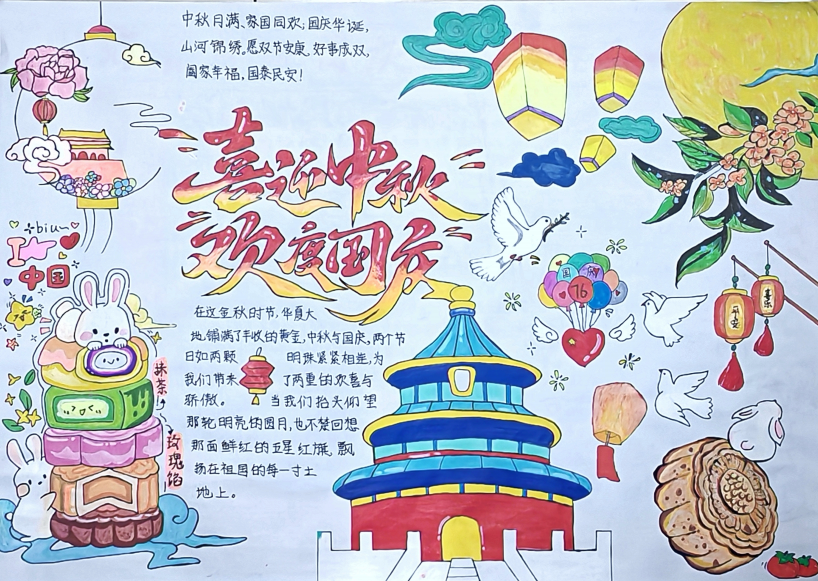 中秋月满、家国同欢;国庆华诞,
山河锦绣。愿双节安康、好事成双,
阖家幸福,国泰民安!
喜迎中秋
欢度国庆
biu~
I
中国
国庆
76
平安
喜乐
在这金秋时节,华夏大
地铺满了丰收的黄金,中秋与国庆,两个节
日如两颗明珠紧紧相连,为
我们带来了两重的欢喜与
骄傲。当我们抬头仰望
那轮明亮的圆月,也不禁回想
那面鲜红的五星红旗,飘
扬在祖国的每一寸土
地上。
抹茶
玫瑰馅